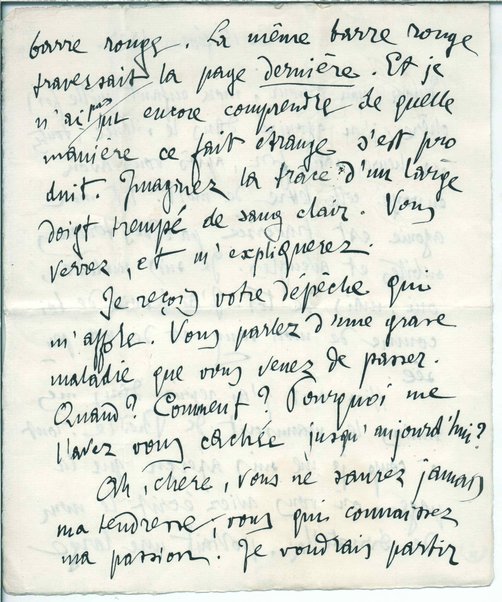 barre rouge. La même barre rouge
traversait la page dernière. Et je
n'ai pas pu encore comprendre de quelle
manière ce fait étrange s'est pro
duit. Imaginez la trace d'un large
doigt trempé de sang clair. Vous
verrez, et m'expliquerez.
Je reçois votre dépêche qui
m'affole. Vous parlez d'une grave
maladie que vous venez de passer.
Quand? Comment? Pourquoi me
l'avez vous cachée jusqu'aujourd'hui?
Ah, chère, vous ne saurez jamais
ma tendresse, vous qui connaissez
ma passion! Je voudrais partir